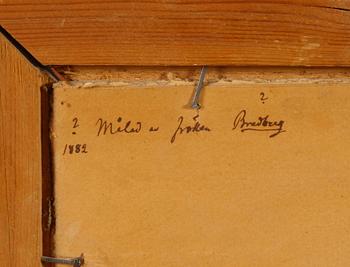 ?
? Målad av fröken Bredberg
1882